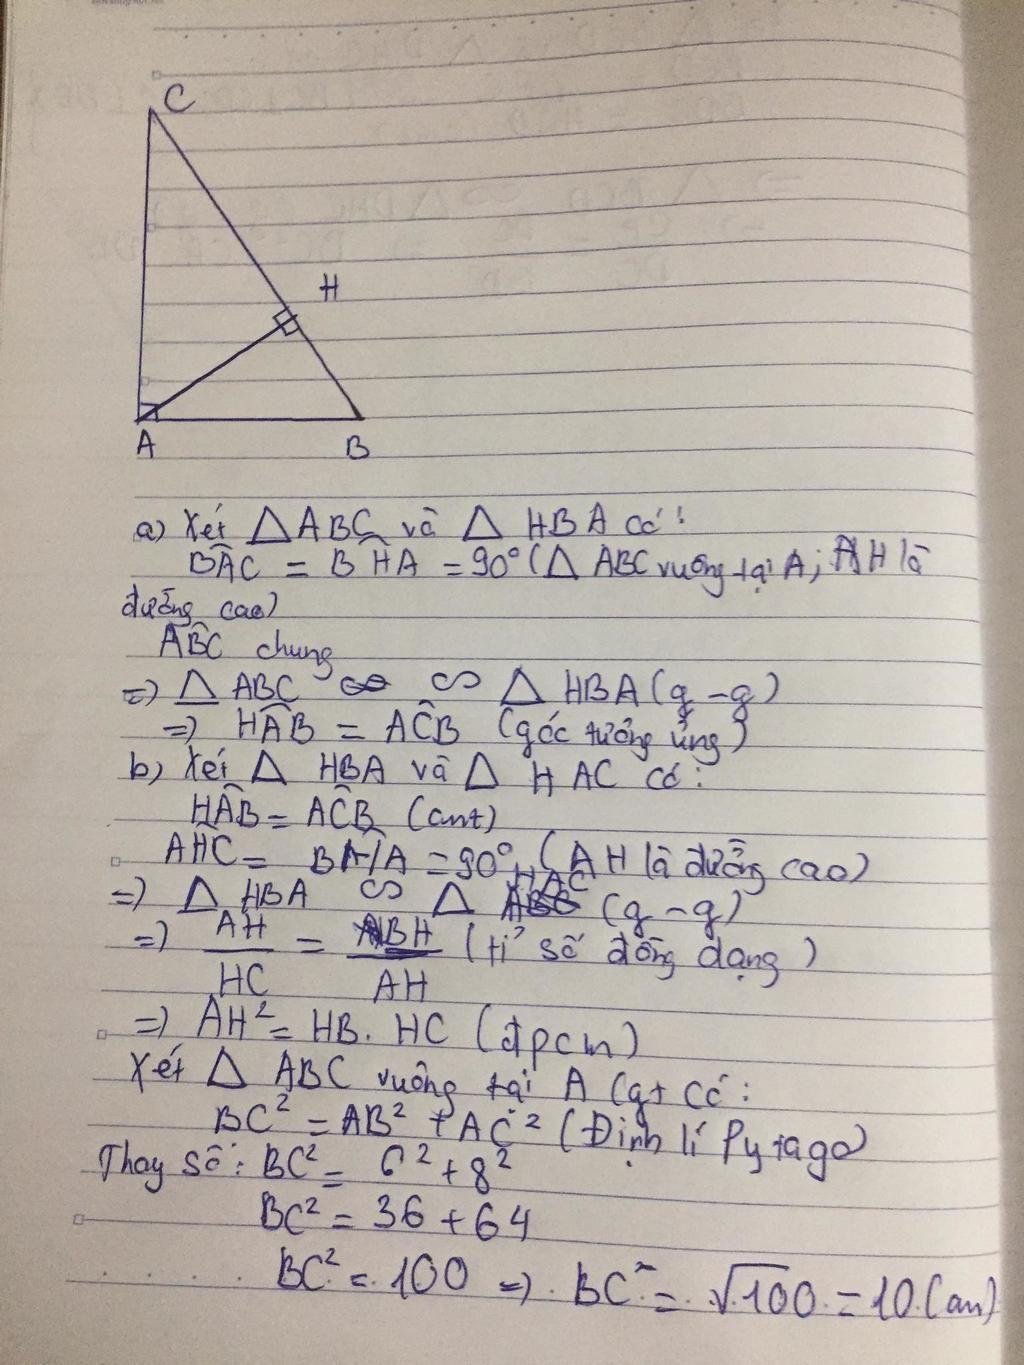 C
H
A
B
a) Xét △ABC và △ HBA có:
BÂC = BĤA = 90° (△ ABC vuông tại A; AH là
đường cao)
AB̂C chung
=> △ ABC ∽ △ HBA (g-g)
=> HÂB = AĈB (góc tương ứng)
b) Xét △ HBA và △ HAC có:
HÂB = AĈB (cmt)
AĤC = BĤA = 90° (AH là đường cao)
=> △ HBA ∽ △ HAC (g-g)
=> AH/HC = BH/AH (tỉ số đồng dạng)
=> AH² = HB. HC (đpcm)
Xét △ ABC vuông tại A (gt có:
BC² = AB² + AC² (Định lí Pytago)
Thay số: BC² = 6² + 8²
BC² = 36 + 64
BC² = 100 => BC = √100 = 10 (cm)